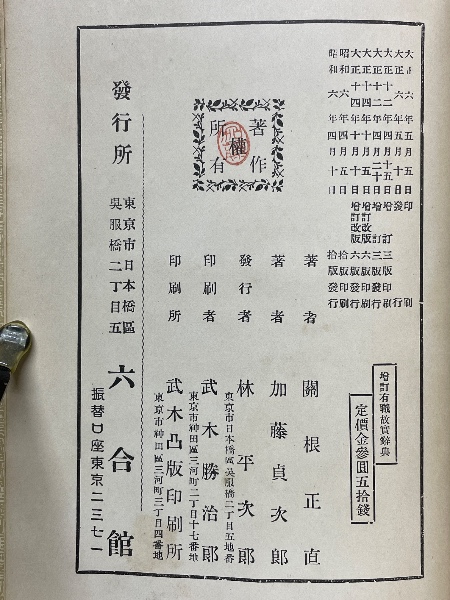 大正六年五月五日印刷
大正六年五月十日發行
大正十二年四月十五日增訂三版印刷
大正十二年四月二十日增訂三版發行
大正十四年五月五日增訂改版六版印刷
大正十四年五月十日增訂改版六版發行
昭和六年四月五日拾版印刷
昭和六年四月十日拾版發行
增訂有職故實辭典
定價金參圓五拾錢
著作
權
所有
著者 關根正直
著者 加藤貞次郎
發行者 林平次郎
東京市日本橋區吳服橋二丁目五地番
印刷者 武木勝治郎
東京市神田區三河町二丁目十七番地
印刷所 武木凸版印刷所
東京市神田區三河町三丁目四番地
發行所 東京市日本橋區
吳服橋二丁目五
六合館
振替口座東京二三七一